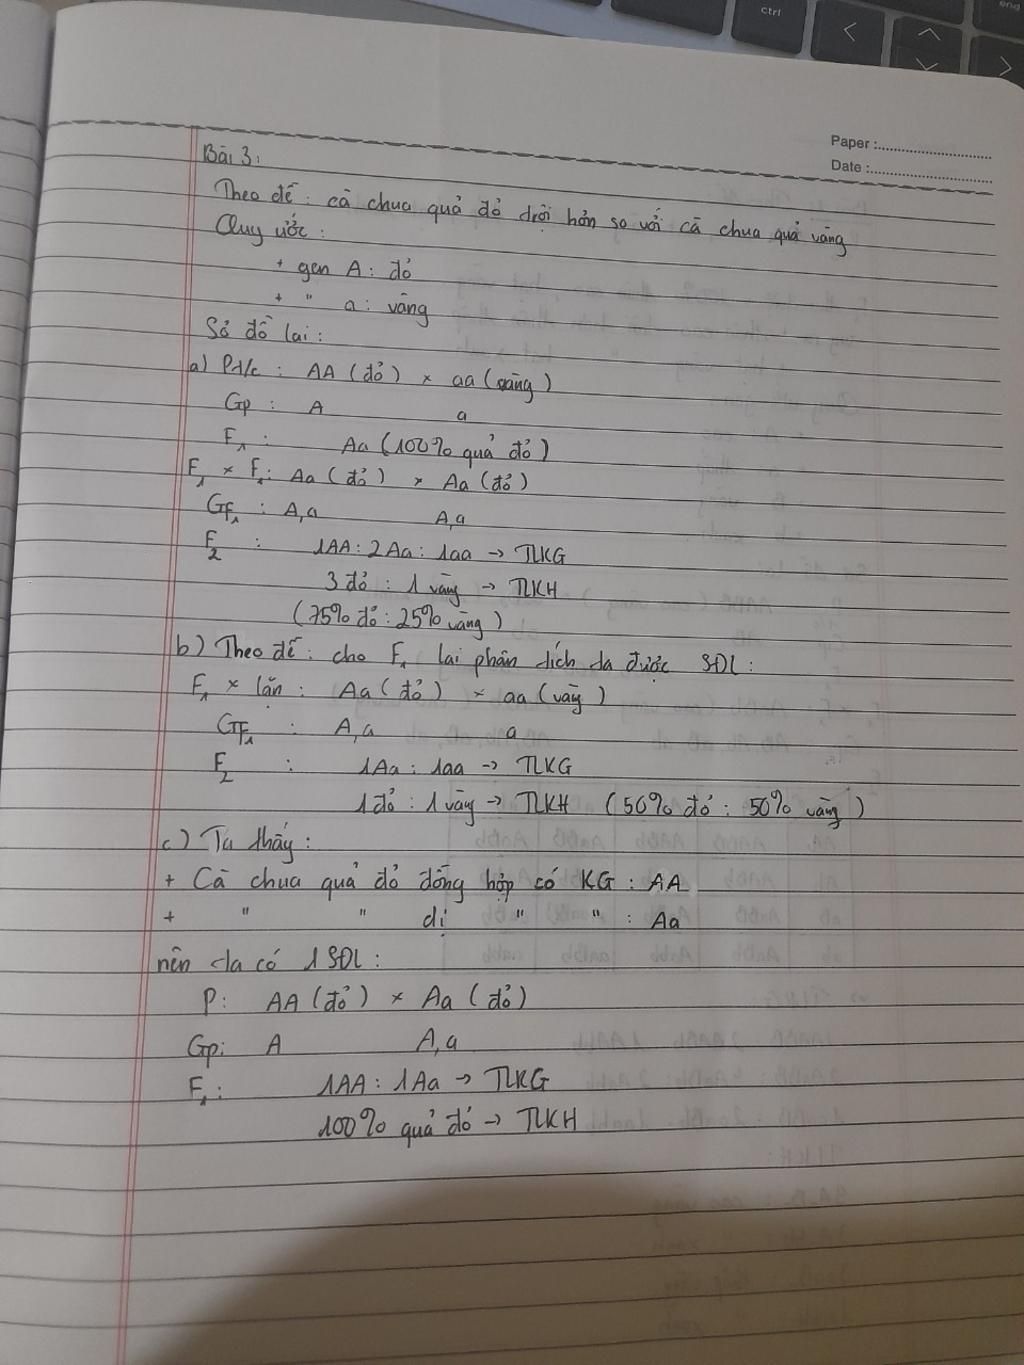 ctrl
eng
Paper :
Date :
Bài 3:
Theo đề: cà chua quả đỏ trội hơn so với cà chua quả vàng
Quy ước:
+ gen A: đỏ
+ " a: vàng
Sơ đồ lai:
a) Pt/c : AA (đỏ) × aa (vàng)
Gp : A a
F₁ : Aa (100% quả đỏ)
F₁ × F₁: Aa (đỏ) × Aa (đỏ)
GF₁ : A,a A,a
F₂ : 1AA : 2Aa : 1aa → TLKG
3 đỏ : 1 vàng → TLKH
(75% đỏ : 25% vàng)
b) Theo đề: cho F₁ lai phân tích ta được SĐL:
F₁ × lặn : Aa (đỏ) × aa (vàng)
GF₁ : A,a a
F₂ : 1Aa : 1aa → TLKG
1 đỏ : 1 vàng → TLKH (50% đỏ : 50% vàng)
c) Ta thấy:
+ Cà chua quả đỏ đồng hợp có KG : AA
+ " " dị " " : Aa
nên ta có 1 SĐL:
P: AA (đỏ) × Aa (đỏ)
Gp: A A,a
F₁: 1AA : 1Aa → TLKG
100% quả đỏ → TLKH